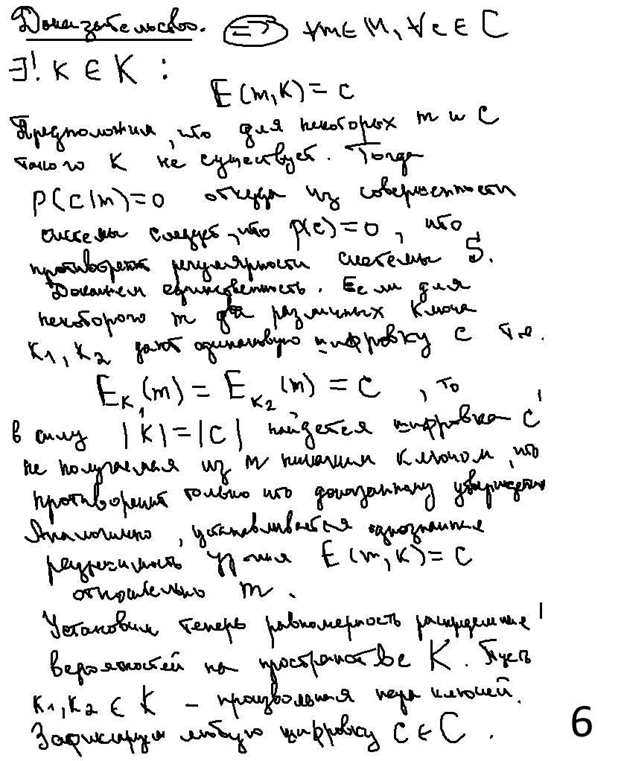 Доказательство. ⇒ ∀m∈M, ∀c∈C
∃! K ∈ K :
E(m,K) = c
Предположим, что для некоторых m и c
такого K не существует. Тогда
P(c|m)=0 откуда из совершенности
системы следует, что p(c)=0, что
противореч регулярности системы S.
Докажем единственность. Если для
некоторого m два различных ключа
K1, K2 дают одинаковую шифровку c т.е.
E_{K_1}(m) = E_{K_2}(m) = C , то
в силу |K|=|C| найдется шифровка c'
не получаемая из m никаким ключом, что
противоречит только что доказанному утвержден
Аналогично, устанавливается однозначная
разрешимость ур-ния E(m,K)=c
относительно m.
Установим теперь равномерность распределения
вероятностей на пространстве K. Пусть
K1, K2 ∈ K – произвольная пара ключей.
Зафиксируем любую шифровку C ∈ C.
6